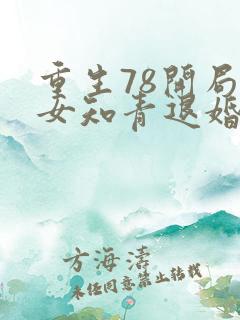 重生78开局
女知青退婚
方海涛
未经同意禁止转载